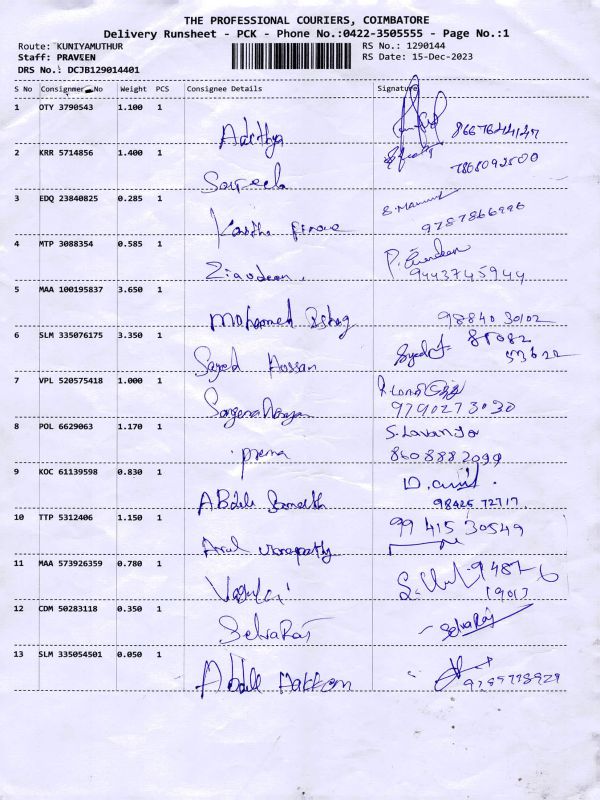 THE PROFESSIONAL COURIERS, COIMBATORE
Delivery Runsheet - PCK - Phone No.:0422-3505555 - Page No.:1
Route: KUNIYAMUTHUR RS No.: 1290144
Staff: PRAVEEN RS Date: 15-Dec-2023
DRS No.: DCJB129014401
S No Consignment No Weight PCS Consignee Details Signature
1 OTY 3790543 1.100 1
Adithya
2 KRR 5714856 1.400 1
7868092500
3 EDQ 23840825 0.285 1
9787866996
4 MTP 3088354 0.585 1
Ziavdeen. 9443745944
5 MAA 100195837 3.650 1
Mohamed Ishag 98840 30102
6 SLM 335076175 3.350 1
Sayed Hossan
7 VPL 520575418 1.000 1
9790273030
8 POL 6629063 1.170 1
prema 8608882099
9 KOC 61139598 0.830 1
98425 72717
10 TTP 5312406 1.150 1 99 415 30549
11 MAA 573926359 0.780 1
12 CDM 50283118 0.350 1
SelvaRaj SelvaRaj
13 SLM 335054501 0.050 1